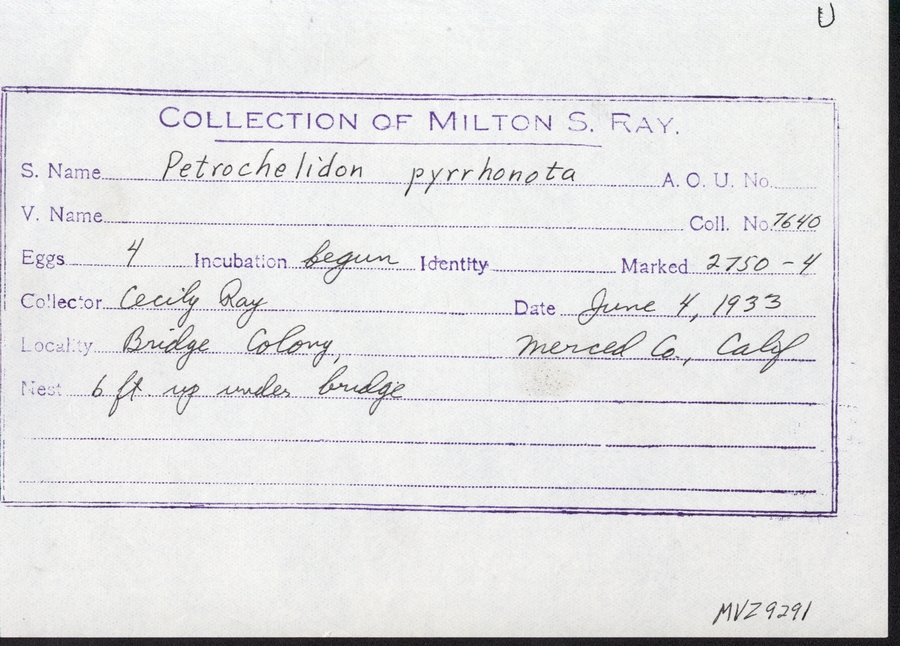 U
COLLECTION OF MILTON S. RAY.
S. Name Petrochelidon pyrrhonota A. O. U. No.
V. Name Coll. No. 7640
Eggs 4 Incubation begun Identity Marked 2750 - 4
Collector Cecily Ray Date June 4, 1933
Locality Bridge Colony, Merced Co., Calif
Nest 6 ft. up under bridge
MVZ9291